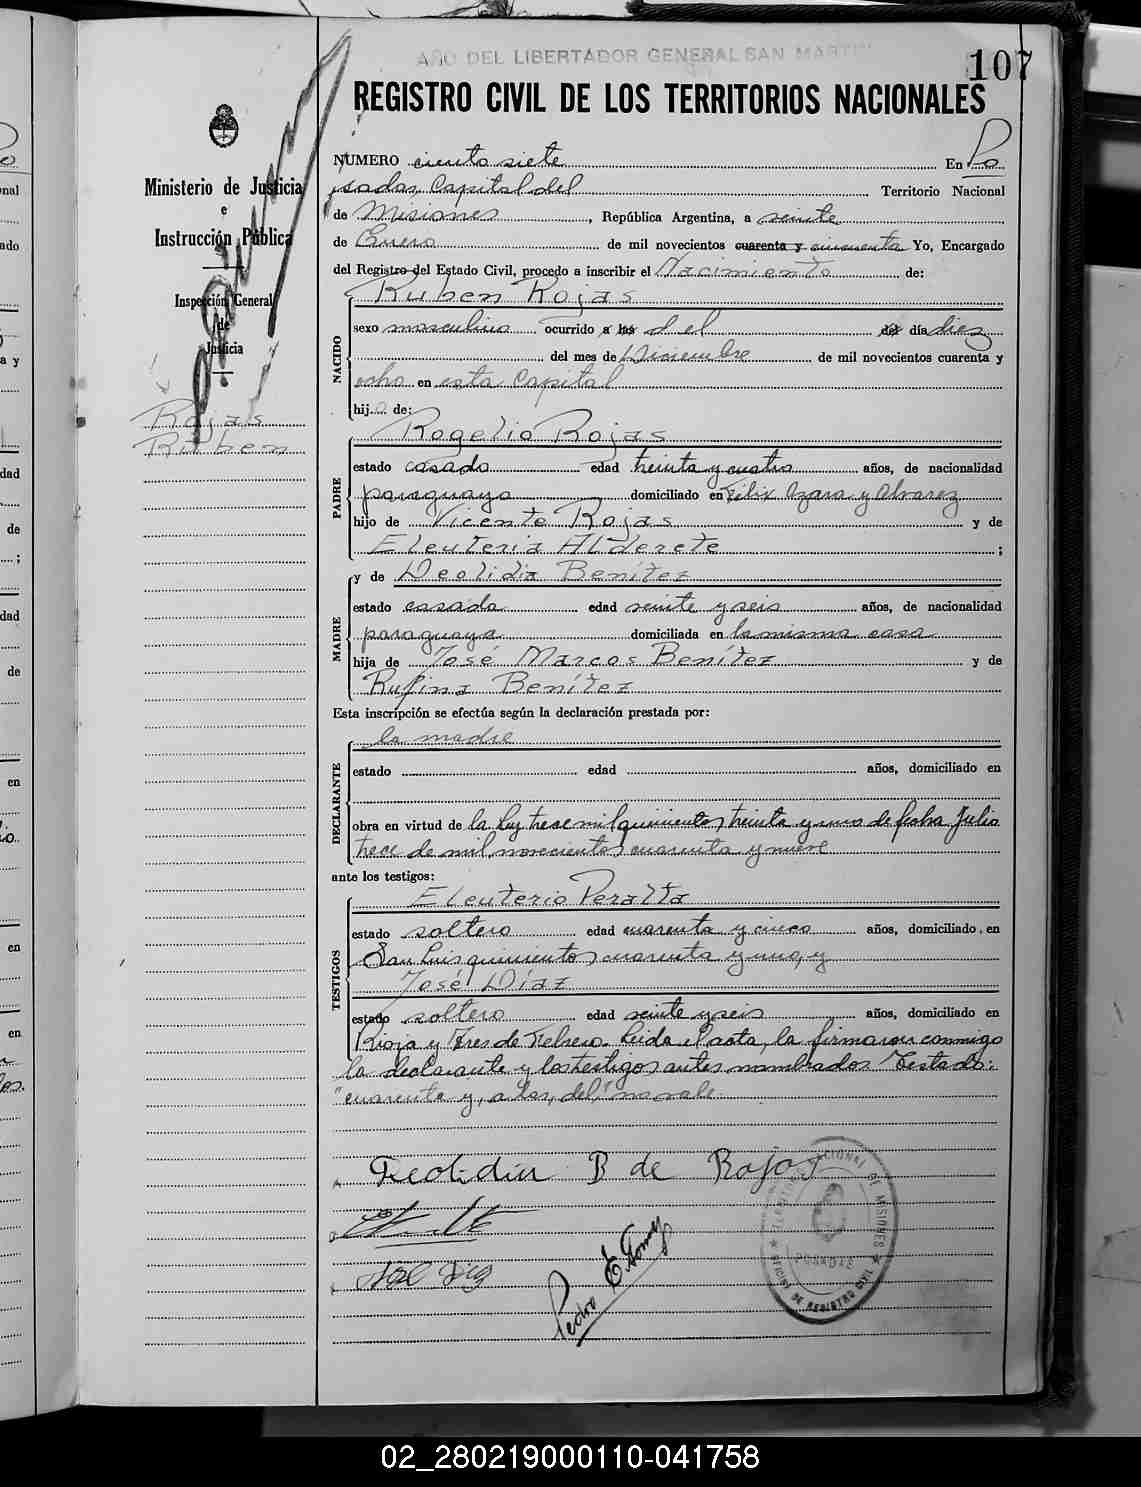 AÑO DEL LIBERTADOR GENERAL SAN MARTIN
107
REGISTRO CIVIL DE LOS TERRITORIOS NACIONALES
Ministerio de Justicia
e
Instrucción Pública
Inspección General
de
Justicia
Rojas
Rúben
NUMERO ciento siete En Po
sadas, Capital del Territorio Nacional
de Misiones, República Argentina, a veinte
de Enero de mil novecientos cuarenta y cincuenta Yo, Encargado
del Registro del Estado Civil, procedo a inscribir el Nacimiento de:
NACIDO
Rúben Rojas
sexo masculino ocurrido a las d el del día diez
del mes de Diciembre de mil novecientos cuarenta y
ocho en esta Capital
hijo de:
PADRE
Rogelio Rojas
estado casado edad treinta y cuatro años, de nacionalidad
paraguaya domiciliado en Félix Azara y Alvarez
hijo de Vicente Rojas y de
Eleuteria Alderete;
MADRE
y de Deolidia Benítez
estado casada edad veinte y seis años, de nacionalidad
paraguaya domiciliada en la misma casa
hija de José Marcos Benítez y de
Rufina Benítez
Esta inscripción se efectúa según la declaración prestada por:
DECLARANTE
la madre
estado edad años, domiciliado en
obra en virtud de la ley trece mil quinientos treinta y uno de fecha Julio
trece de mil novecientos cuarenta y nueve
ante los testigos:
TESTIGOS
Eleuterio Peralta
estado soltero edad cuarenta y cinco años, domiciliado en
San Luis quinientos cuarenta y uno, y
José Díaz
estado soltero edad veinte y seis años, domiciliado en
Rioja y Tres de Febrero. Leida el acta, la firmaron conmigo
la declarante y los testigos antes nombrados Testado:
"cuarenta y, a las, del," no vale.
B de Rojas
José Diaz
Pedro E. Gomez
TERRITORIO NACIONAL DE MISIONES
POSADAS
OFICINA DE REGISTRO CIVIL
02_280219000110-041758